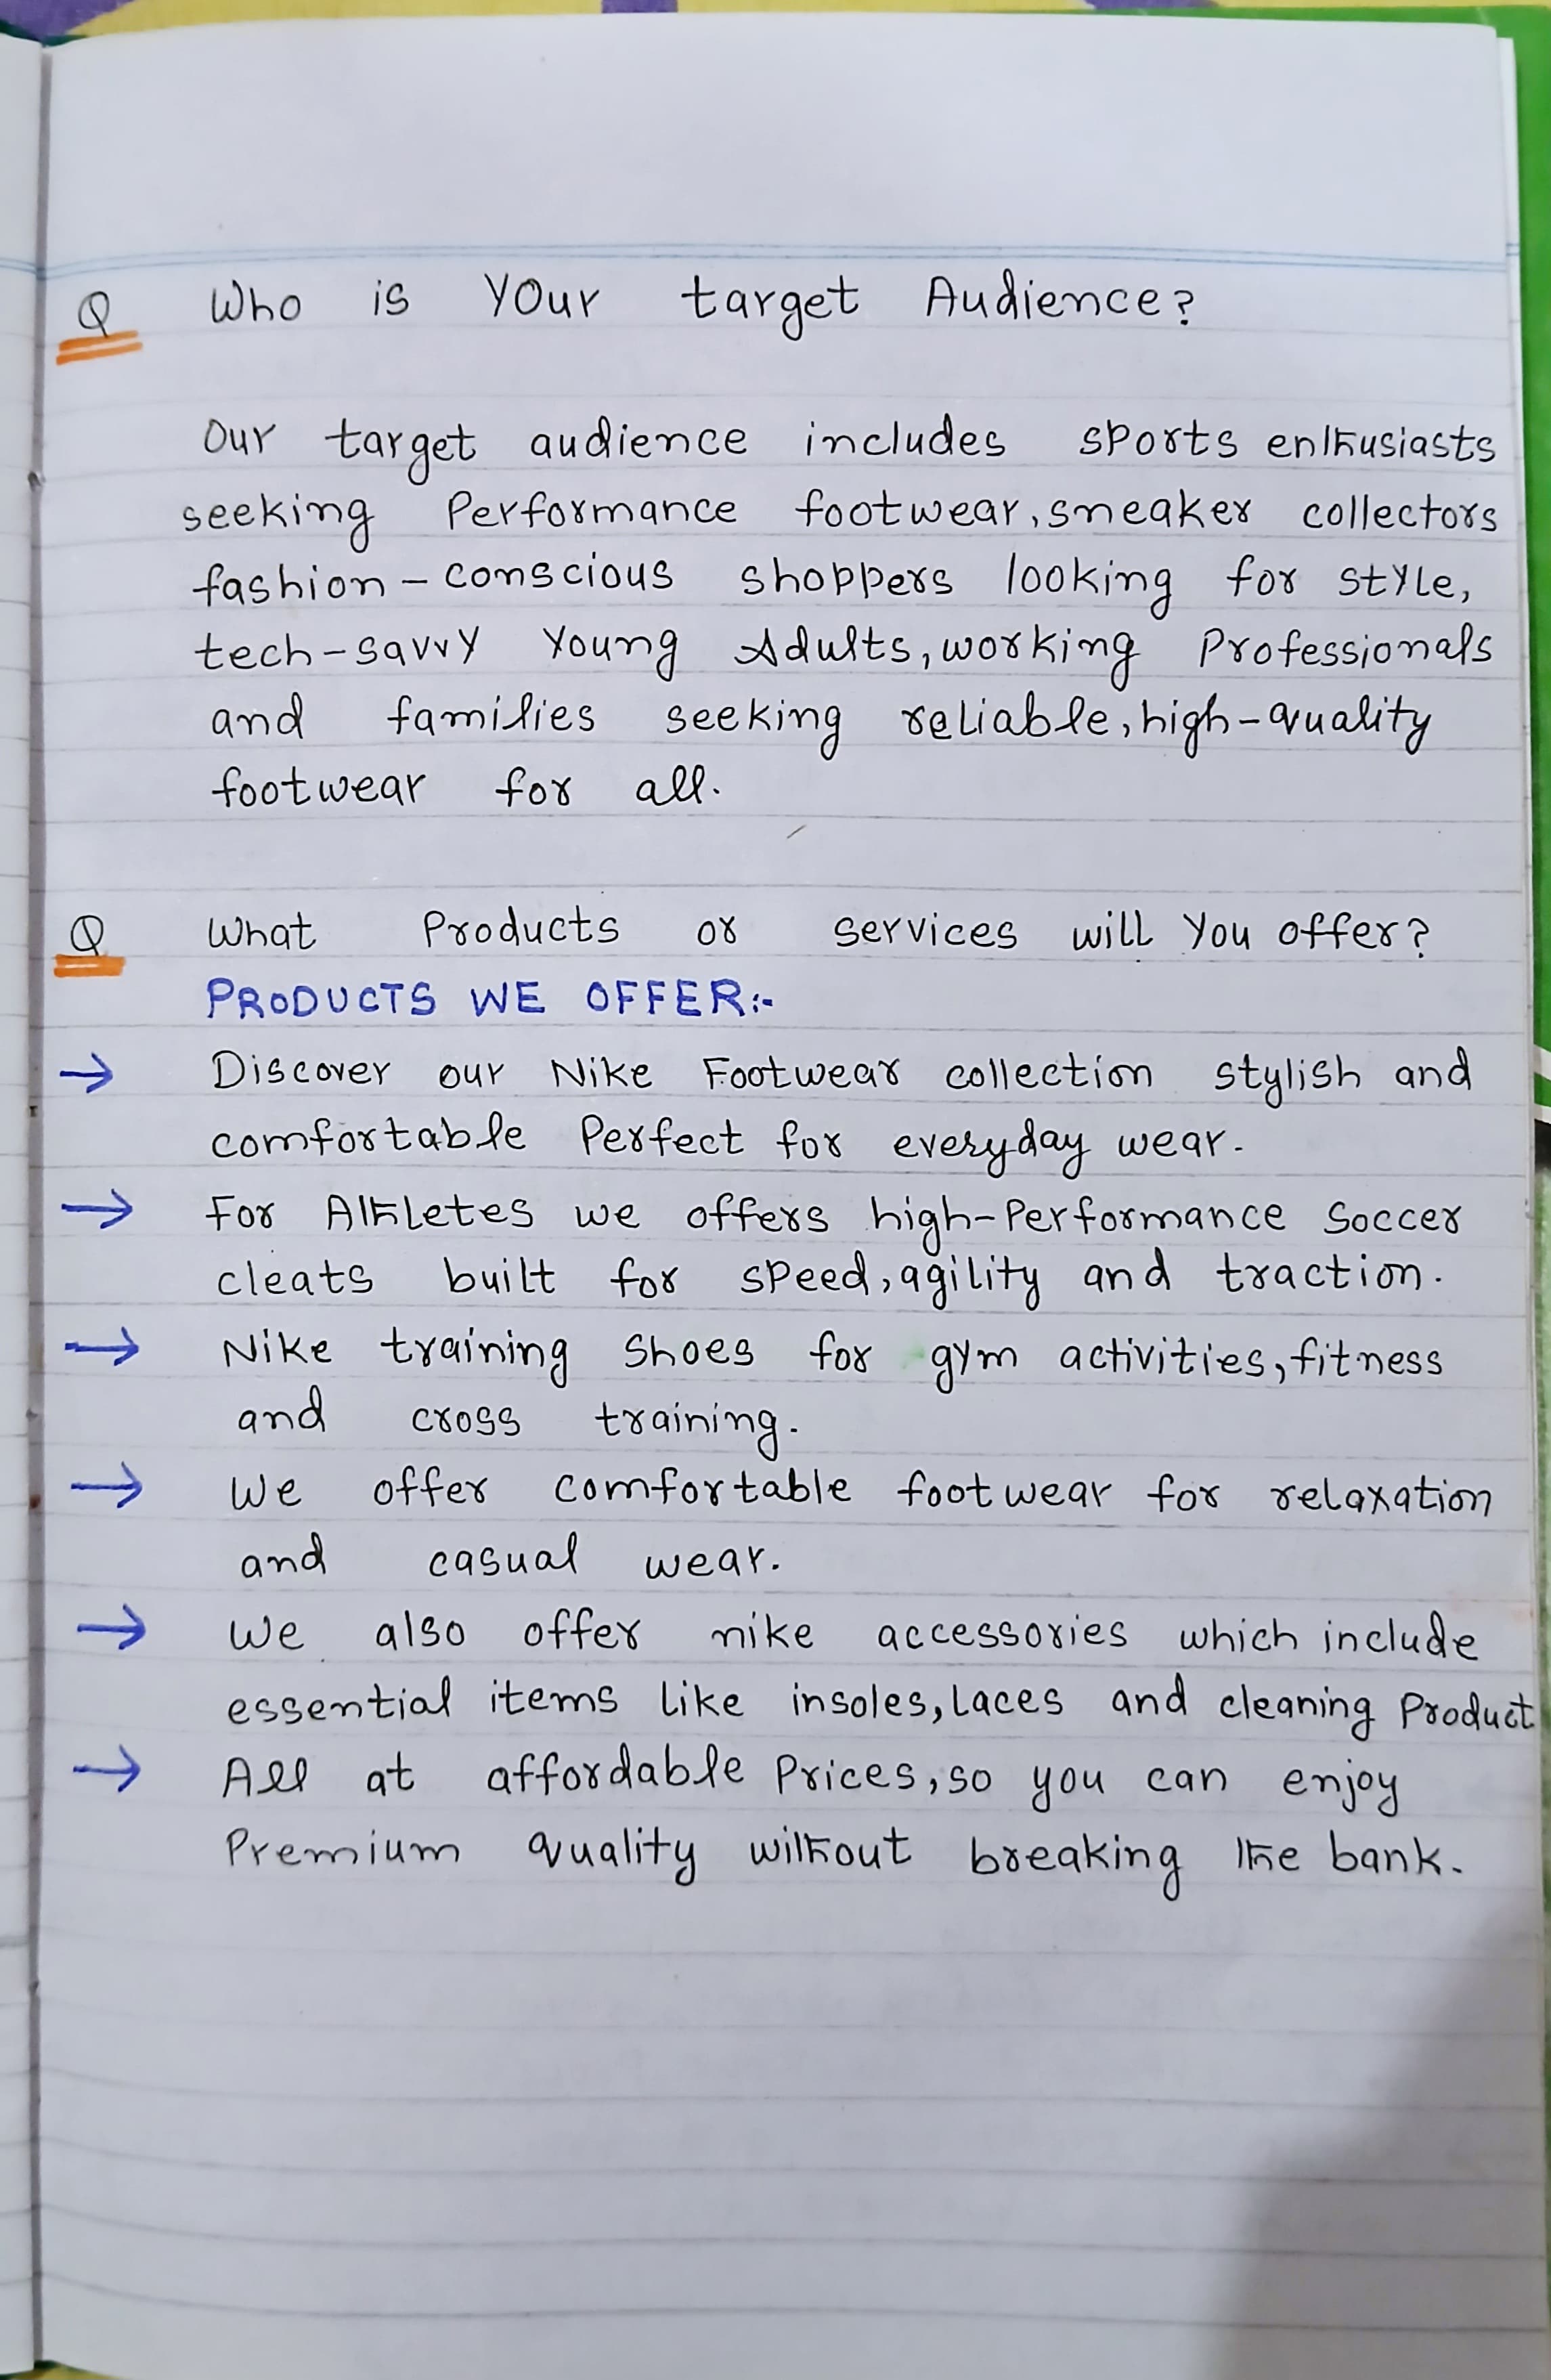 Q Who is Your target Audience?
Our target audience includes sports enthusiasts
seeking Performance footwear, sneaker collectors
fashion - conscious shoppers looking for style,
tech-savvy Young Adults, working Professionals
and families seeking reliable, high-quality
footwear for all.
Q What Products or services will You offer?
PRODUCTS WE OFFER:-
→ Discover our Nike Footwear collection stylish and
comfortable Perfect for everyday wear.
→ For Athletes we offers high-Performance Soccer
cleats built for speed, agility and traction.
→ Nike training Shoes for gym activities, fitness
and cross training.
→ We offer comfortable footwear for relaxation
and casual wear.
→ We also offer nike accessories which include
essential items like insoles, laces and cleaning Product
→ All at affordable Prices, so you can enjoy
Premium quality without breaking the bank.